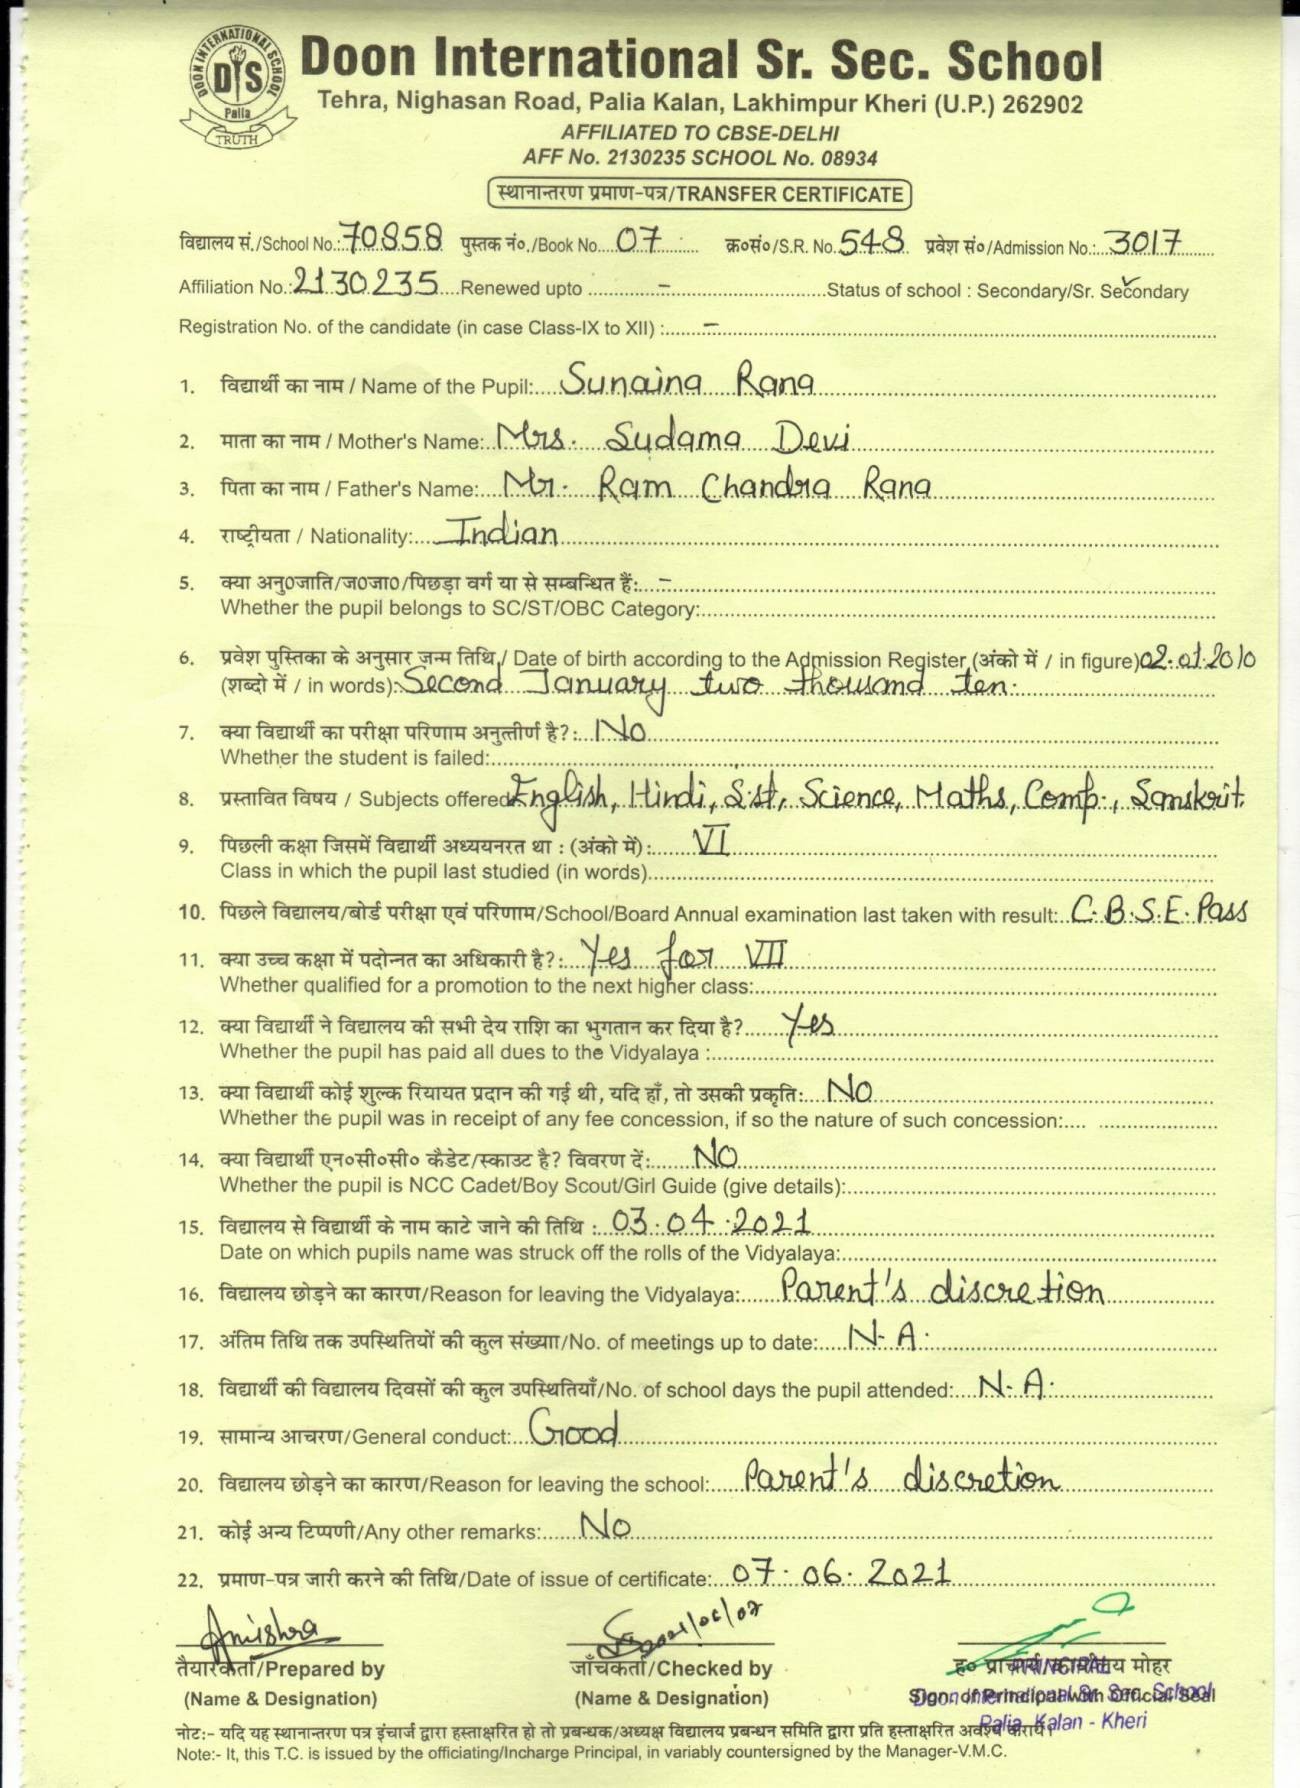 DOON INTERNATIONAL SCHOOL
DIS
Palia
TRUTH
Doon International Sr. Sec. School
Tehra, Nighasan Road, Palia Kalan, Lakhimpur Kheri (U.P.) 262902
AFFILIATED TO CBSE-DELHI
AFF No. 2130235 SCHOOL No. 08934
स्थानान्तरण प्रमाण-पत्र/TRANSFER CERTIFICATE
विद्यालय सं./School No.: 70858 पुस्तक नं०./Book No. 07 क्र०सं०/S.R. No. 548 प्रवेश सं०/Admission No.: 3017
Affiliation No.: 2130235 Renewed upto – Status of school : Secondary/Sr. Secondary
Registration No. of the candidate (in case Class-IX to XII) : –
1. विद्यार्थी का नाम / Name of the Pupil: Sunaina Rana
2. माता का नाम / Mother's Name: Mrs. Sudama Devi
3. पिता का नाम / Father's Name: Mr. Ram Chandra Rana
4. राष्ट्रीयता / Nationality: Indian
5. क्या अनु0जाति/ज0जा0/पिछड़ा वर्ग या से सम्बन्धित हैं: –
Whether the pupil belongs to SC/ST/OBC Category:
6. प्रवेश पुस्तिका के अनुसार जन्म तिथि / Date of birth according to the Admission Register (अंको में / in figure) 02.01.2010
(शब्दो में / in words): Second January two thousand ten.
7. क्या विद्यार्थी का परीक्षा परिणाम अनुत्तीर्ण है?: No
Whether the student is failed:
8. प्रस्तावित विषय / Subjects offered English, Hindi, S.st, Science, Maths, Comp., Sanskrit.
9. पिछली कक्षा जिसमें विद्यार्थी अध्ययनरत था : (अंको में): VI
Class in which the pupil last studied (in words)
10. पिछले विद्यालय/बोर्ड परीक्षा एवं परिणाम/School/Board Annual examination last taken with result: C.B.S.E. Pass
11. क्या उच्च कक्षा में पदोन्नत का अधिकारी है?: Yes for VII
Whether qualified for a promotion to the next higher class:
12. क्या विद्यार्थी ने विद्यालय की सभी देय राशि का भुगतान कर दिया है? Yes
Whether the pupil has paid all dues to the Vidyalaya :
13. क्या विद्यार्थी कोई शुल्क रियायत प्रदान की गई थी, यदि हाँ, तो उसकी प्रकृति: NO
Whether the pupil was in receipt of any fee concession, if so the nature of such concession:
14. क्या विद्यार्थी एन०सी०सी० कैडेट/स्काउट है? विवरण दें: NO
Whether the pupil is NCC Cadet/Boy Scout/Girl Guide (give details):
15. विद्यालय से विद्यार्थी के नाम काटे जाने की तिथि : 03.04.2021
Date on which pupils name was struck off the rolls of the Vidyalaya:
16. विद्यालय छोड़ने का कारण/Reason for leaving the Vidyalaya: Parent's discretion
17. अंतिम तिथि तक उपस्थितियों की कुल संख्याा/No. of meetings up to date: N.A.
18. विद्यार्थी की विद्यालय दिवसों की कुल उपस्थितियाँ/No. of school days the pupil attended: N.A.
19. सामान्य आचरण/General conduct: Good
20. विद्यालय छोड़ने का कारण/Reason for leaving the school: Parent's discretion
21. कोई अन्य टिप्पणी/Any other remarks: No
22. प्रमाण-पत्र जारी करने की तिथि/Date of issue of certificate: 07.06.2021
2021/06/07
तैयारकर्ता/Prepared by जाँचकर्ता/Checked by ह० प्राचार्य कार्यालय मोहर
PRINCIPAL
(Name & Designation) (Name & Designation) Sign. of Principal with Official Seal
Doon International Sr. Sec. School
Palia Kalan - Kheri
नोटः- यदि यह स्थानान्तरण पत्र इंचार्ज द्वारा हस्ताक्षरित हो तो प्रबन्धक/अध्यक्ष विद्यालय प्रबन्धन समिति द्वारा प्रति हस्ताक्षरित अवश्य कराये।
Note:- It, this T.C. is issued by the officiating/Incharge Principal, in variably countersigned by the Manager-V.M.C.